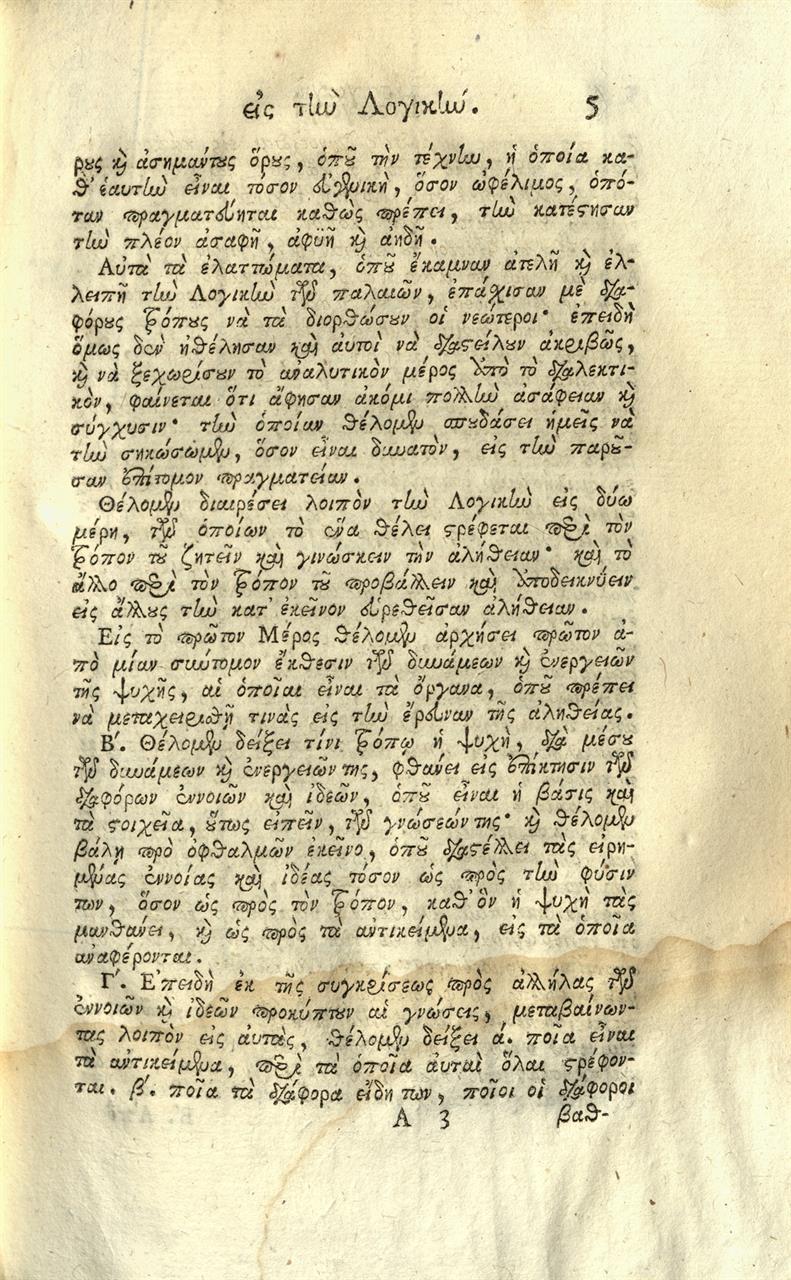 εἰς τὴν Λογικήν. 5
ρους καὶ ἀσημάντους ὅρους, ὁποῦ τὴν τέχνην, ἡ ὁποία κα-
θ' ἑαυτὴν εἶναι τόσον εὐγενικὴ, ὅσον ὠφέλιμος, ὁπό-
ταν πραγματεύηται καθὼς πρέπει, τὴν κατέστησαν
τὴν πλέον ἀσαφῆ, ἀφυῆ καὶ ἀηδῆ.
Αὐτὰ τὰ ἐλαττώματα, ὁποῦ ἔκαμναν ἀτελῆ καὶ ἐλ-
λειπῆ τὴν Λογικὴν τῶν παλαιῶν, ἐπάσχισαν μὲ δια-
φόρους τρόπους νὰ τὰ διορθώσουν οἱ νεώτεροι· ἐπειδὴ
ὅμως δὲν ἠθέλησαν καὶ αὐτοὶ νὰ διαστείλουν ἀκριβῶς,
καὶ νὰ ξεχωρίσουν τὸ ἀναλυτικὸν μέρος ἀπὸ τὸ διαλεκτι-
κὸν, φαίνεται ὅτι ἄφησαν ἀκόμι πολλὴν ἀσάφειαν καὶ
σύγχυσιν· τὴν ὁποίαν θέλομεν σπουδάσει ἡμεῖς νὰ
τὴν σηκώσωμεν, ὅσον εἶναι δυνατὸν, εἰς τὴν παροῦ-
σαν ἐπίτομον πραγματείαν.
Θέλομεν διαιρέσει λοιπὸν τὴν Λογικὴν εἰς δύω
μέρη, τῶν ὁποίων τὸ ἕνα θέλει στρέφεται περὶ τὸν
τρόπον τοῦ ζητεῖν καὶ γινώσκειν τὴν ἀλήθειαν· καὶ τὸ
ἄλλο περὶ τὸν τρόπον τοῦ προβάλλειν καὶ ὑποδεικνύειν
εἰς ἄλλους τὴν κατ' ἐκεῖνον εὑρεθεῖσαν ἀλήθειαν.
Εἰς τὸ πρῶτον Μέρος θέλομεν ἀρχήσει πρῶτον ἀ-
πὸ μίαν σύντομον ἔκθεσιν τῶν δυνάμεων καὶ ἐνεργειῶν
τῆς ψυχῆς, αἱ ὁποῖαι εἶναι τὰ ὄργανα, ὁποῦ πρέπει
νὰ μεταχειρισθῇ τινὰς εἰς τὴν ἔρευναν τῆς ἀληθείας.
Β'. Θέλομεν δείξει τίνι τρόπῳ ἡ ψυχὴ, διὰ μέσου
τῶν δυνάμεων καὶ ἐνεργειῶν της, φθάνει εἰς ἐπίκτησιν τῶν
διαφόρων ἐννοιῶν καὶ ἰδεῶν, ὁποῦ εἶναι ἡ βάσις καὶ
τὰ στοιχεῖα, οὕτως εἰπεῖν, τῶν γνώσεών της· καὶ θέλομεν
βάλῃ πρὸ ὀφθαλμῶν ἐκεῖνο, ὁποῦ διαστέλλει τὰς εἰρη-
μένας ἐννοίας καὶ ἰδέας τόσον ὡς πρὸς τὴν φύσιν
των, ὅσον ὡς πρὸς τὸν τρόπον, καθ' ὃν ἡ ψυχὴ τὰς
μανθάνει, καὶ ὡς πρὸς τὰ ἀντικείμενα, εἰς τὰ ὁποῖα
ἀναφέρονται.
Γ'. Ἐπειδὴ ἐκ τῆς συγκρίσεως πρὸς ἀλλήλας τῶν
ἐννοιῶν καὶ ἰδεῶν προκύπτουν αἱ γνώσεις, μεταβαίνων-
τας λοιπὸν εἰς αὐτὰς, θέλομεν δείξει ά. ποῖα εἶναι
τὰ ἀντικείμενα, περὶ τὰ ὁποῖα αὐταὶ ὅλαι στρέφον-
ται. β'. ποῖα τὰ διάφορα εἴδη των, ποῖοι οἱ διάφοροι
Α 3 βαθ-